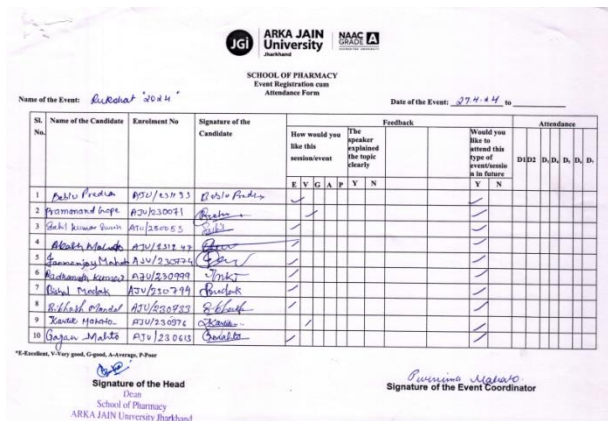 JGi
ARKA JAIN
University
Jharkhand
NAAC
GRADE A
SCHOOL OF PHARMACY
Event Registration cum
Attendance Form
Name of the Event: Rukshat "2024"
Date of the Event: 27.4.24 to
Sl. No. Name of the Candidate Enrolment No Signature of the Candidate Feedback Attendance
How would you like this session/event The speaker explained the topic clearly Would you like to attend this type of event/session in future
E V G A P Y N Y N D1 D2
1
2 Pramanand Gope AJU/230071
3 AJU/230053
4 Akash Mahato
5 Mahato
6 Kumar AJU/230999
7 Modak AJU/230794
8 Bibhash Mandal AJU/230933
9 Kartik Mahato AJU/230976
10 Gagan Mahto AJU/230613
*E-Excellent, V-Very good, G-good, A-Average, P-Poor
Signature of the Head
Dean
School of Pharmacy
ARKA JAIN University Jharkhand
Purnima Mahato
Signature of the Event Coordinator